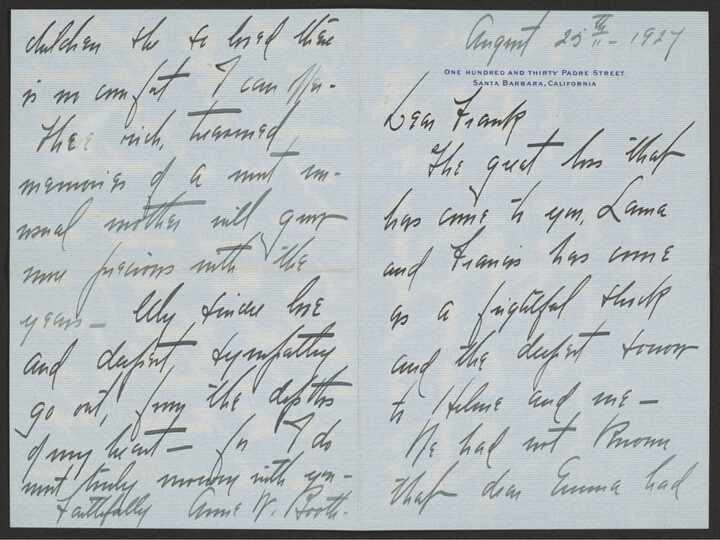 August 25th - 1927
ONE HUNDRED AND THIRTY PADRE STREET
SANTA BARBARA, CALIFORNIA
Dear Frank
The great loss that
has come to you, Laura
and Francis has come
as a frightful shock
and the deepest sorrow
to and me —
We had not known
that dear Emma had
children she so loved there
is no comfort I can offer -
The rich, treasured
memories of a most un-
usual mother will grow
more precious with the
years — My sincere love
and deepest sympathy
go out, from the depths
of my heart — for I do
most truly mourn with you -
Faithfully Anne W. Booth -